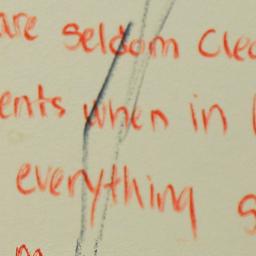 are seldom clea
ents when in
everything s